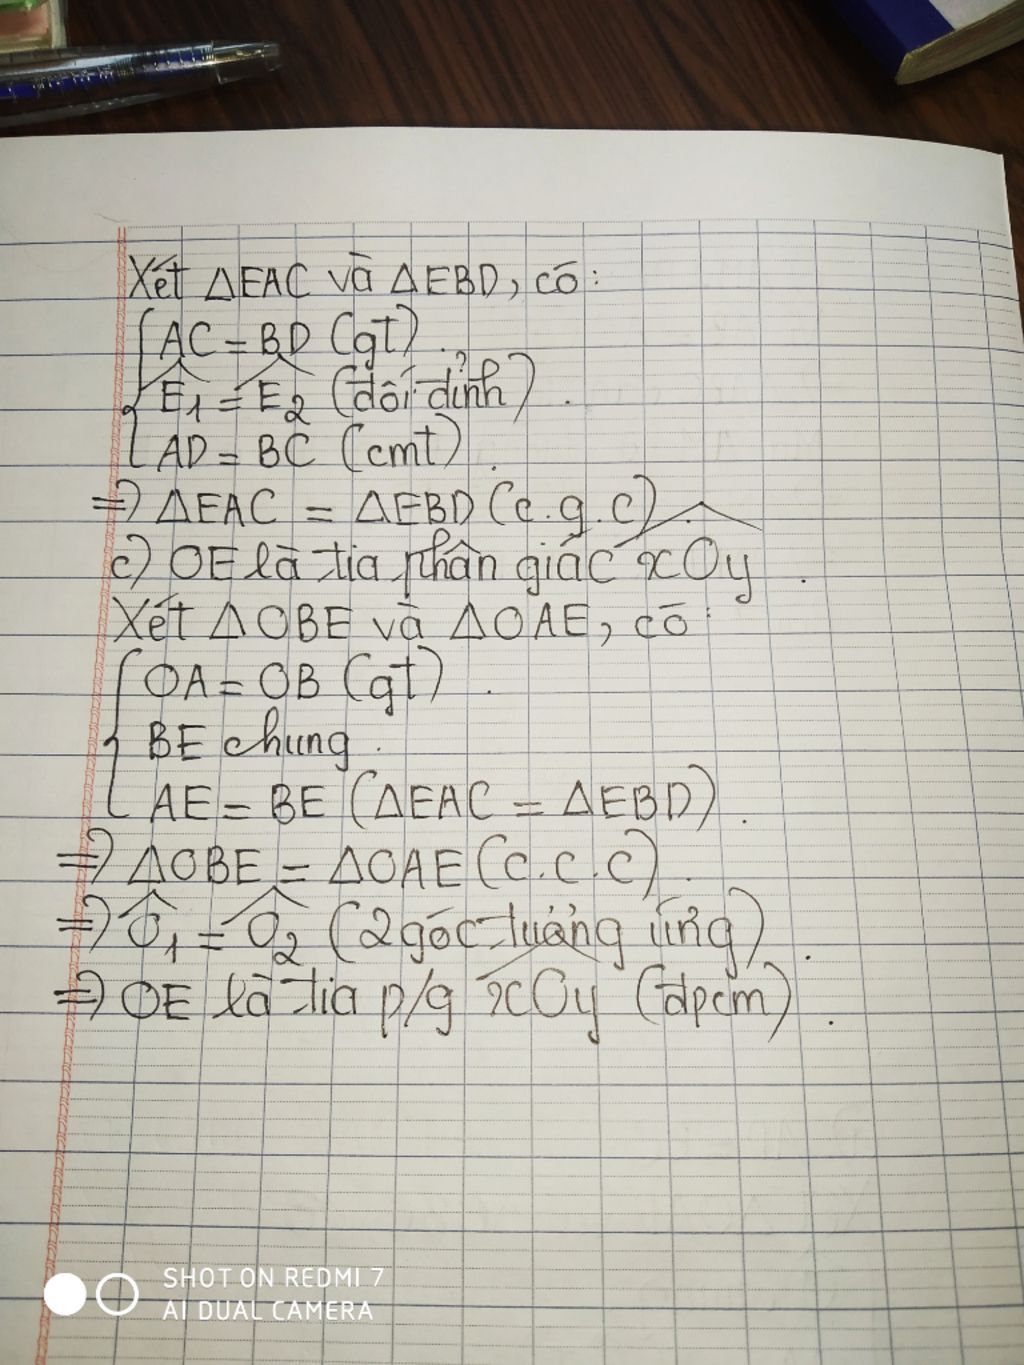 Xét ΔEAC và ΔEBD, có:
AC = BD (gt).
Ê1 = Ê2 (đối đỉnh).
AD = BC (cmt).
=) ΔEAC = ΔEBD (c.g.c).
c) OE là tia phân giác xOy.
Xét ΔOBE và ΔOAE, có:
OA = OB (gt).
BE chung.
AE = BE (ΔEAC = ΔEBD).
=) ΔOBE = ΔOAE (c.c.c).
=) Ô1 = Ô2 (2 góc tương ứng).
=) OE là tia p/g xOy (đpcm).
SHOT ON REDMI 7
AI DUAL CAMERA